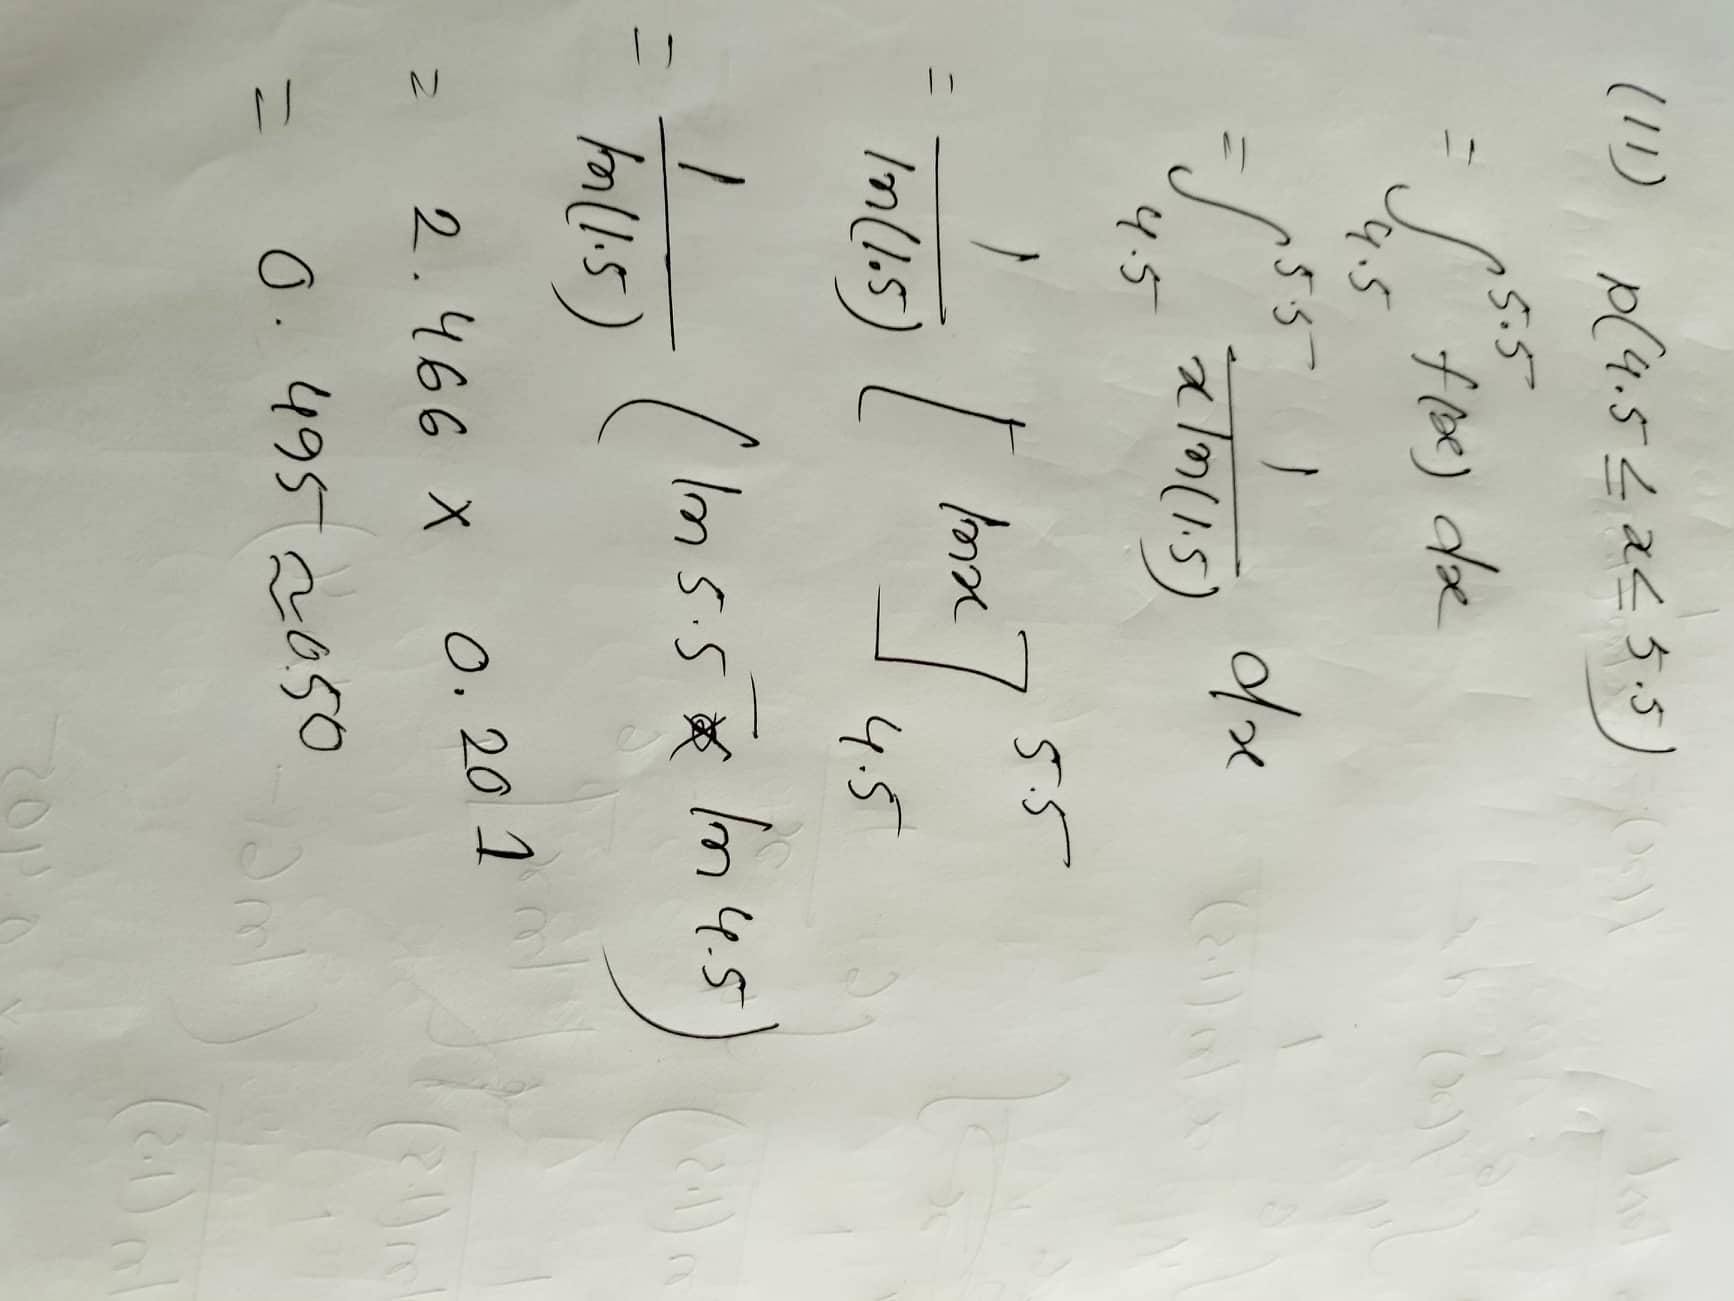 (11) p(4.5 ≤ x ≤ 5.5)
= ∫_{4.5}^{5.5} f(x) dx
= ∫_{4.5}^{5.5} 1/(x ln(1.5)) dx
= 1/ln(1.5) [ln x]_{4.5}^{5.5}
= 1/ln(1.5) (ln 5.5 - ln 4.5)
= 2.466 x 0.201
= 0.495 ≈ 0.50